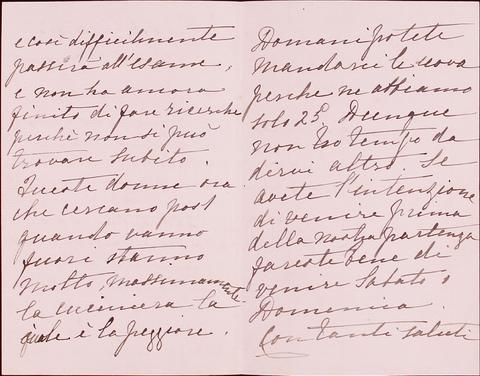 e così difficilmente
passirà all'esame,
e non ha ancora
finito di fare ricerche
perchè non si può
trovare subito.
Queste donne ora
che cercano post
quando vanno
fuori stanno
molto, massimamente
la cuciniera la
quale è la peggiore.
Domani potete
mandarci le uova
perchè ne abbiamo
solo 25. Dunque
non ho tempo da
dirvi altro Se
avete l'intenzione
di venire prima
della nostra partenza
fareste bene di
venire Sabato o
Domenica.
Con tanti saluti